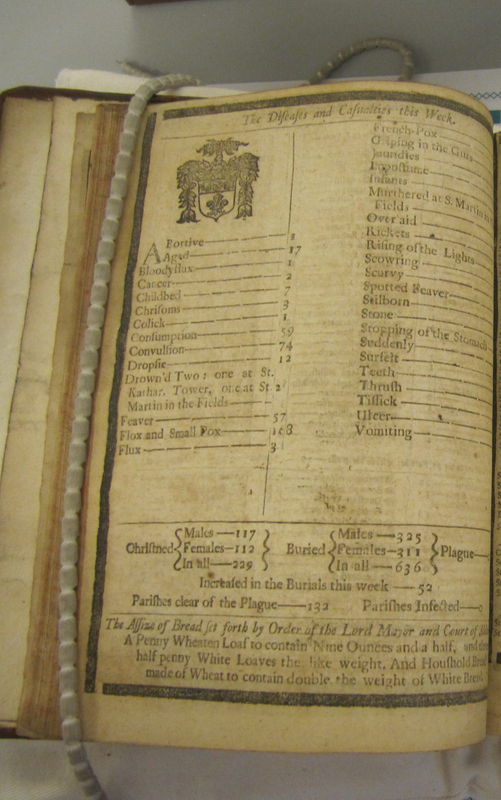 The Diseases and Casualties this Week.
ABortive 1
Aged 17
Bloodyflux 1
Cancer 2
Childbed 7
Chrisoms 3
Colick 1
Consumption 59
Convulsion 74
Dropsie 12
Drown'd Two: one at St.
Kathar. Tower, one at St. 2
Martin in the Fields
Feaver 57
Flox and Small Pox
Flux 3
French-Pox
Griping in the Guts
Jaundies
Imposthume
Infants
Murthered at S. Martin in
Fields
Over aid
Rickets
Rising of the Lights
Scowring
Scurvy
Spotted Feaver
Stilborn
Stone
Stopping of the Stomach
Suddenly
Surfeit
Teeth
Thrush
Tissick
Ulcer
Vomiting
Christned { Males — 117 Females — 112 In all — 229 } Buried { Males — 325 Females — 311 In all — 636 } Plague —
Increased in the Burials this week — 52
Parishes clear of the Plague — 132 Parishes Infected — 0
The Assize of Bread set forth by Order of the Lord Mayor and Court of
A Penny Wheaten Loaf to contain Nine Ounces and a half, and three
half penny White Loaves the like weight. And Houshold Bread
made of Wheat to contain double the weight of White Bread.